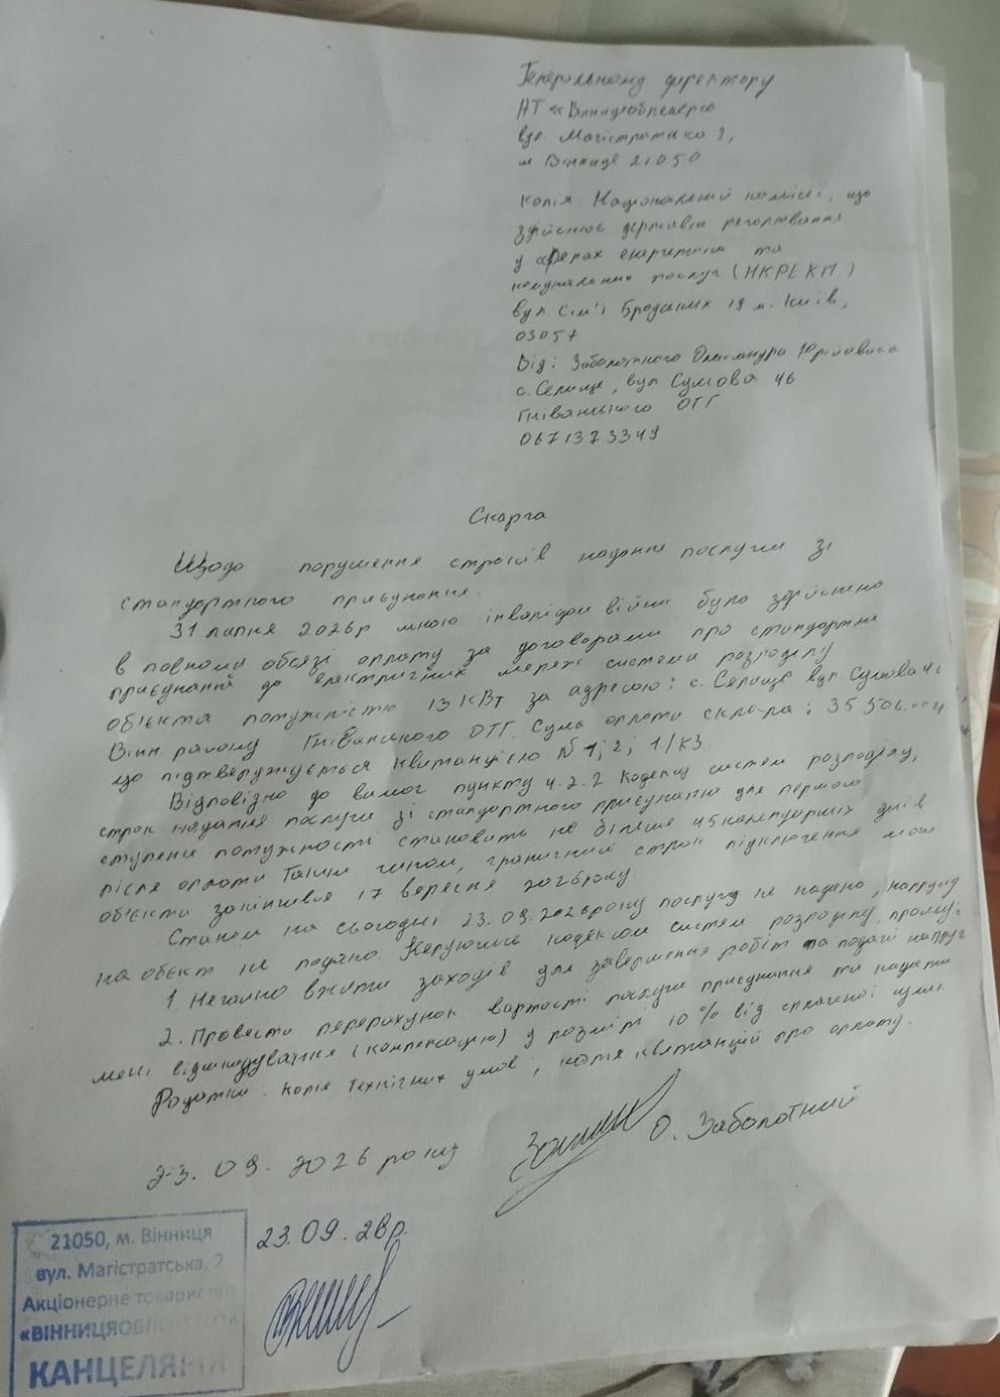 Генеральному директору
АТ «Вінницяобленерго
вул. Магістратська 2,
м Вінниця 21050
Копія Національній комісії, що
здійснює державне регулювання
у сферах енергетики та
комунальних послуг (НКРЕКП)
вул. Сім'ї Бродських 19 м. Київ,
03057
Від: Заболотного Олександра Юрійовича
с. Селище, вул Сумова 46
Гніванського ОТГ
0671373349
Скарга
Щодо порушення строків надання послуги зі
стандартного приєднання.
31 липня 2026р мною інвалідом війни було здійснено
в повному обсязі оплату за договорами про стандартне
приєднання до електричних мереж системи розподілу
об'єкта потужністю 13 кВт за адресою: с. Селище вул Сумова
Вінн. району Гніванського ОТГ. Сума оплати склала: 35 506.
що підтверджується квитанцією № 1; 2; 1/КЗ
Відповідно до вимог пункту 4.2.2 Кодексу систем розподілу,
строк надання послуги зі стандартного приєднання для першого
ступеня потужності становить не більше 45 календарних днів
після оплати Таким чином, граничний строк підключення мого
об'єкта закінчився 17 вересня 2026року.
Станом на сьогодні 23.09.2026року послугу не надано, напругу
на об'єкт не подано. Керуючись кодексом систем розподілу, прошу:
1 Негайно вжити заходів для завершення робіт та подачі напруги
2. Провести перерахунок вартості послуги приєднання та надати
мені відшкодування (компенсацію) у розмірі 10% від сплаченої суми.
Додатки. Копія технічних умов, копія квитанцій про оплату.
23.09.2026 року О. Заболотний
23.09.26р.
21050, м. Вінниця
вул. Магістратська, 2
Акціонерне товариство
«ВІННИЦЯОБЛЕНЕРГО»
КАНЦЕЛЯРІЯ